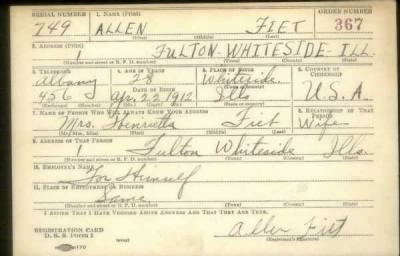 SERIAL NUMBER 1. NAME (Print) ORDER NUMBER
749 ALLEN FIET 367
(First) (Middle) (Last)
2. ADDRESS (Print)
1 FULTON-WHITESIDE-ILL.
(Number and street or R. F. D. number) (Town) (County) (State)
3. TELEPHONE 4. AGE IN YEARS 5. PLACE OF BIRTH 6. COUNTRY OF CITIZENSHIP
Albany 28 Whiteside
DATE OF BIRTH
456 Apr. 23 1912 Ills U.S.A.
(Exchange) (Number) (Mo.) (Day) (Yr.) (State or country)
7. NAME OF PERSON WHO WILL ALWAYS KNOW YOUR ADDRESS 8. RELATIONSHIP OF THAT PERSON
Mrs. Henrietta Fiet Wife
(Mr., Mrs., Miss) (First) (Middle) (Last)
9. ADDRESS OF THAT PERSON
1 Fulton Whiteside Ills.
(Number and street or R. F. D. number) (Town) (County) (State)
10. EMPLOYER'S NAME
For Himself
11. PLACE OF EMPLOYMENT OR BUSINESS
Same
(Number and street or R. F. D. number) (Town) (County) (State)
I AFFIRM THAT I HAVE VERIFIED ABOVE ANSWERS AND THAT THEY ARE TRUE.
REGISTRATION CARD
D. S. S. Form 1 (over) Allen Fiet
(Registrant's signature)